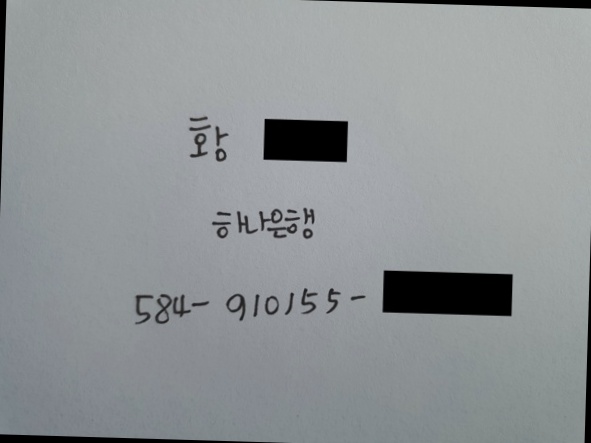 황
하나은행
584-910155-